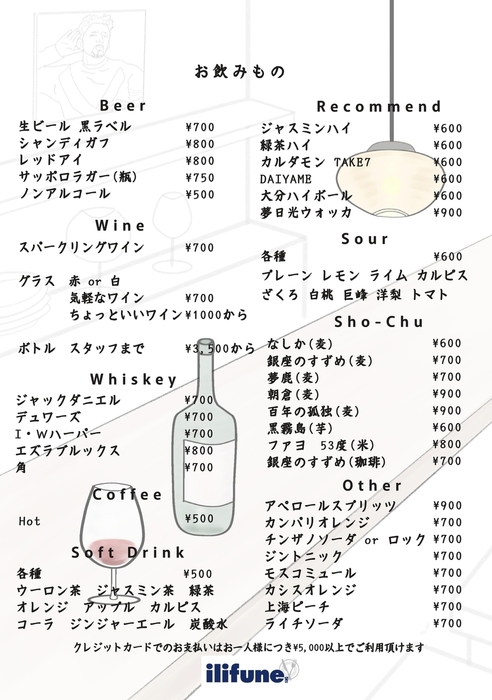 お飲みもの
Beer
生ビール 黒ラベル ¥700
シャンディガフ ¥800
レッドアイ ¥800
サッポロラガー(瓶) ¥750
ノンアルコール ¥500
Wine
スパークリングワイン ¥700
グラス 赤 or 白
気軽なワイン ¥700
ちょっといいワイン¥1000から
ボトル スタッフまで ¥3,500から
Whiskey
ジャックダニエル ¥700
デュワーズ ¥700
I・Wハーパー ¥700
エズラブルックス ¥800
角 ¥700
Coffee
Hot ¥500
Soft Drink
各種 ¥500
ウーロン茶 ジャスミン茶 緑茶
オレンジ アップル カルピス
コーラ ジンジャーエール 炭酸水
Recommend
ジャスミンハイ ¥600
緑茶ハイ ¥600
カルダモン TAKE7 ¥600
DAIYAME ¥600
大分ハイボール ¥600
夢日光ウォッカ ¥900
Sour
各種 ¥600
プレーン レモン ライム カルピス
ざくろ 白桃 巨峰 洋梨 トマト
Sho-Chu
なしか(麦) ¥600
銀座のすずめ(麦) ¥700
夢鹿(麦) ¥700
朝倉(麦) ¥900
百年の孤独(麦) ¥900
黒霧島(芋) ¥600
ファヨ 53度(米) ¥800
銀座のすずめ(珈琲) ¥700
Other
アペロールスプリッツ ¥900
カンパリオレンジ ¥700
チンザノソーダ or ロック ¥700
ジントニック ¥700
モスコミュール ¥700
カシスオレンジ ¥700
上海ピーチ ¥700
ライチソーダ ¥700
クレジットカードでのお支払いはお一人様につき¥5,000以上でご利用頂けます
ilifune,